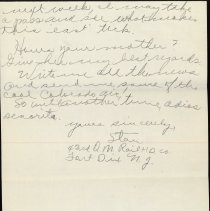 next week, it may take
a pass and see what makes
this east tick.
How's your mother?
Give her my best regards.
Write me all the news
and send me some of the
cool Colorado air!
So until another time, adios
senorita.
Yours sincerely,
Stan
Q.M.
Fort Dix N.J.